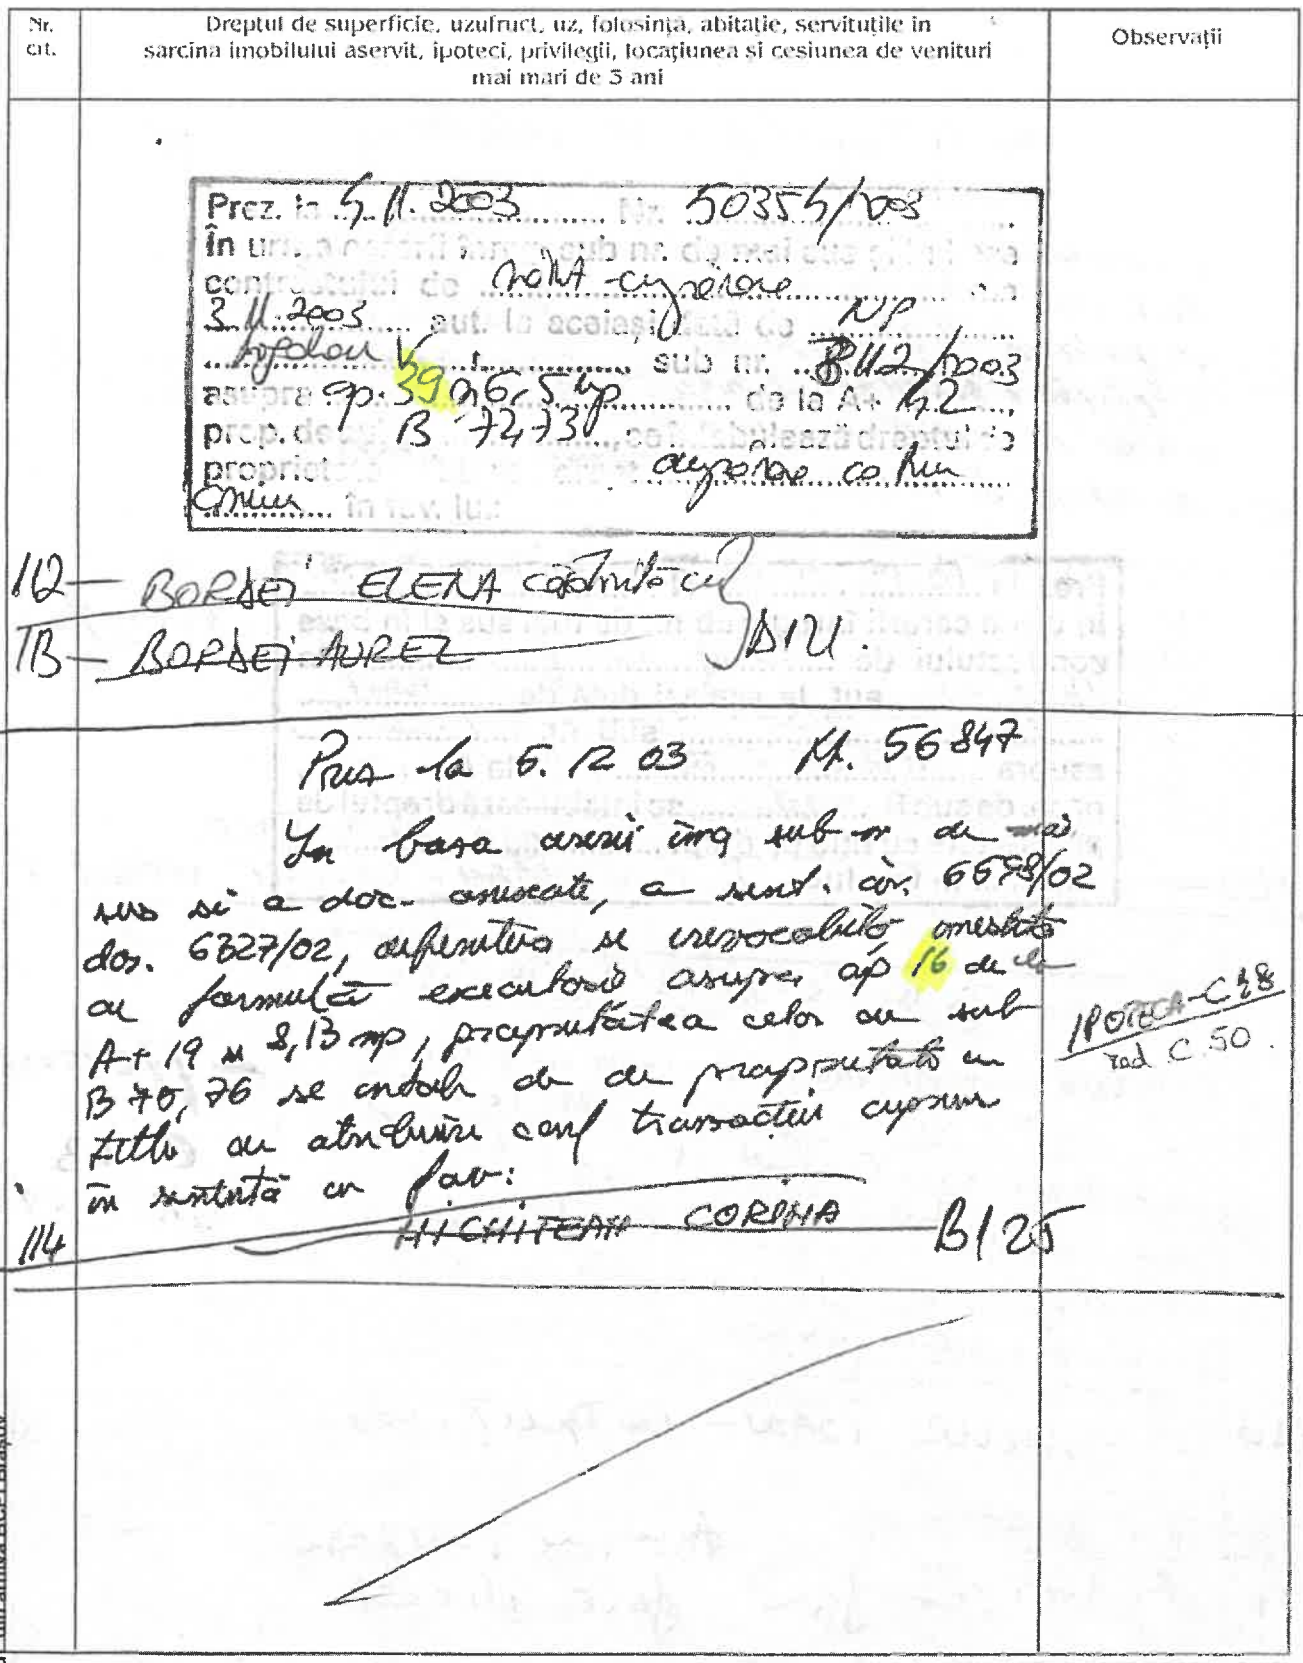 Nr. crt.
Dreptul de superficie, uzufruct, uz, folosinţă, abitaţie, servituţile în
sarcina imobilului aservit, ipoteci, privilegii, locaţiunea si cesiunea de venituri
mai mari de 3 ani
Observaţii
Prez. la 5.11.2003 Nr. 50354/2003
În urma cererii înreg. sub nr. de mai sus
contractului de
3.11.2003 aut. la aceiaşi dată de NP
Bogdan sub nr. 112/2003
asupra ap. 39 de la A+ 42
prop. de B 72,73 , se intabulează dreptul de
proprietate cumpărare ca bun
comun în fav. lui:
112 — BORDEI ELENA căsătorită cu
113 — BORDEI AUREL B121.
Prez la 5. 12 03 Nr. 56847
In baza cererii înreg sub nr de mai
sus si a doc. anexate, a sent. civ. 6698/02
dos. 6327/02, definitiva si irevocabilă investită
cu formulă executorie asupra ap 16 de la
A+ 19 si 8,13 mp, proprietatea celor de sub
B 75, 76 se intab dr de proprietate cu
titlu de atribuire conf tranzactiei cuprinse
în sentintă in fav:
114 NICHITEAN CORINA B125
IPOTECA-C48
rad C 50.
din arhiva BCPI Braşov